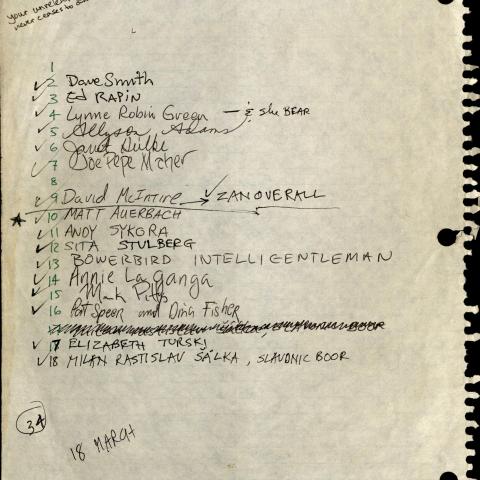 your
never ceases to
1
2 Dave Smith
3 ED RAPIN
4 Lynne Robin Green — & She BEAR
5 Allyson Adams
6 Janet
7 Joe Pepe Maher
8
9 David McIntire → ZAN OVERALL
10 MATT AUERBACH
11 ANDY SYKORA
12 SITA STULBERG
13 BOWERBIRD INTELLIGENTLEMAN
14 Annie La Ganga
15 Mark Pitts
16 Pat Speer and Dina Fisher
17 ELIZABETH TURSKI
18 MILAN RASTISLAV ŠÁLKA, SLAVONIC BOOR
34
18 MARCH